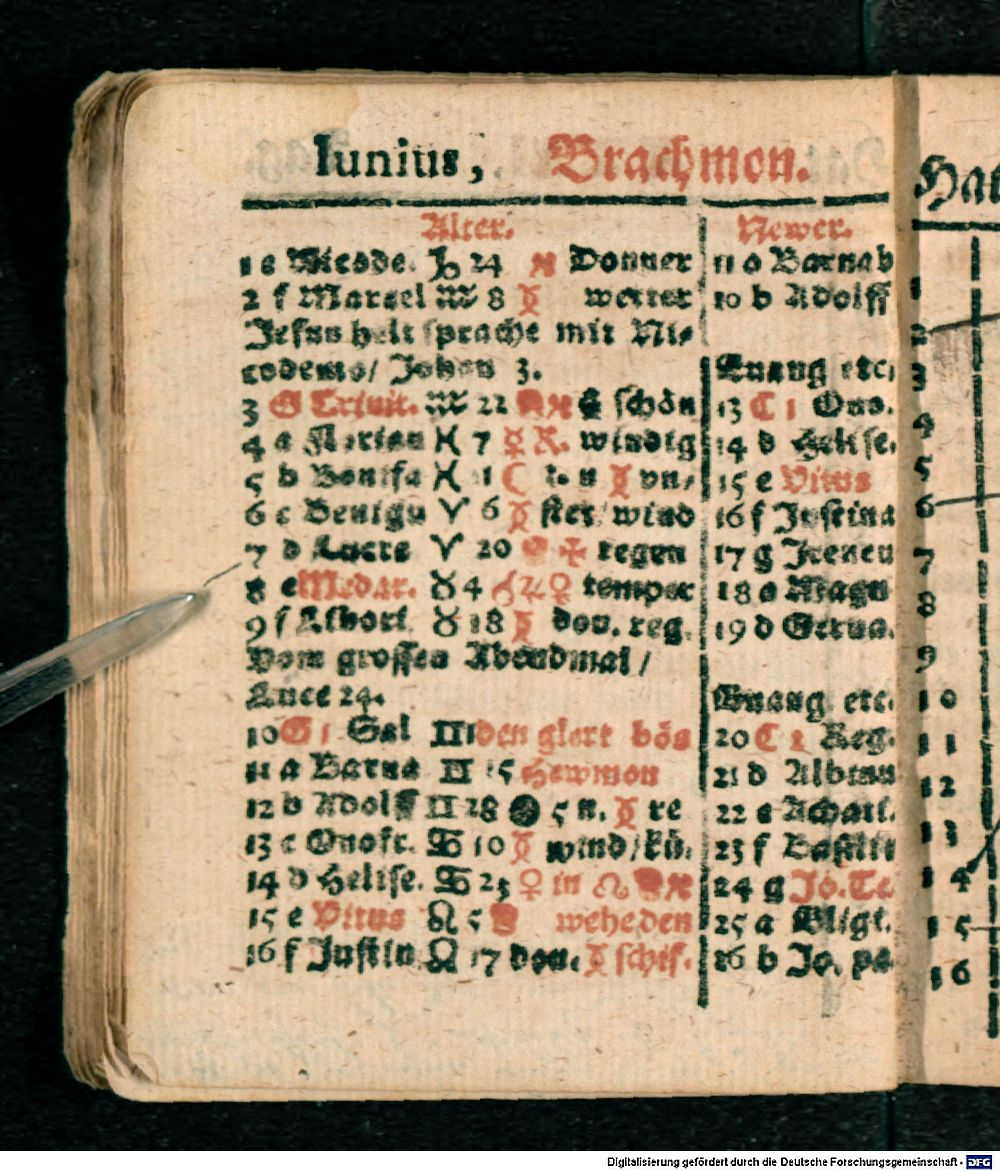 Iunius, Brachmon.
Alter. Newer.
1 e Nicode. ♑ 24 Donner 11 a Barnab
2 f Marcel ♒ 8 wetter 10 b Adolff
Jesus helt sprache mit Ni⸗
codemo/ Johan 3. Euang etc.
3 G Trinit. ♒ 22 schön 13 C 1 Ono.
4 a Florian ♓ 7 ☿ R. windig 14 d Helise.
5 b Bonifa ♓ 21 ☾ vn⸗ 15 e Vitus
6 c Benign ♈ 6 ster/wind 16 f Justina
7 d Lucre ♈ 20 ✠ regen 17 g Ireneu
8 e Medar. ♉ 4 ♂♃♀ temper 18 a Magn
9 f Albort ♉ 18 don. reg. 19 b Gerua.
Vom grossen Abendmal/
Luce 24. Euang etc.
10 G 1 Gal ♊ den glert bös 20 C 2 Reg.
11 a Barna ♊ 15 Hewmon 21 d Albinu
12 b Adolff ♊ 28 ● 5 n. re 22 e Achatt.
13 c Onofr. ♋ 10 wind/kü. 23 f Basilii
14 d Helise. ♋ 23 ♀ in ♌ 24 g Jo. Te
15 e Vitus ♌ 5 weheden 25 a Eligt.
16 f Justin ♌ 17 don. schif. 26 b Jo. pa
Hai
1
2
3
4
5
6
7
8
9
10
11
12
13
14
15
16
Digitalisierung gefördert durch die Deutsche Forschungsgemeinschaft - DFG